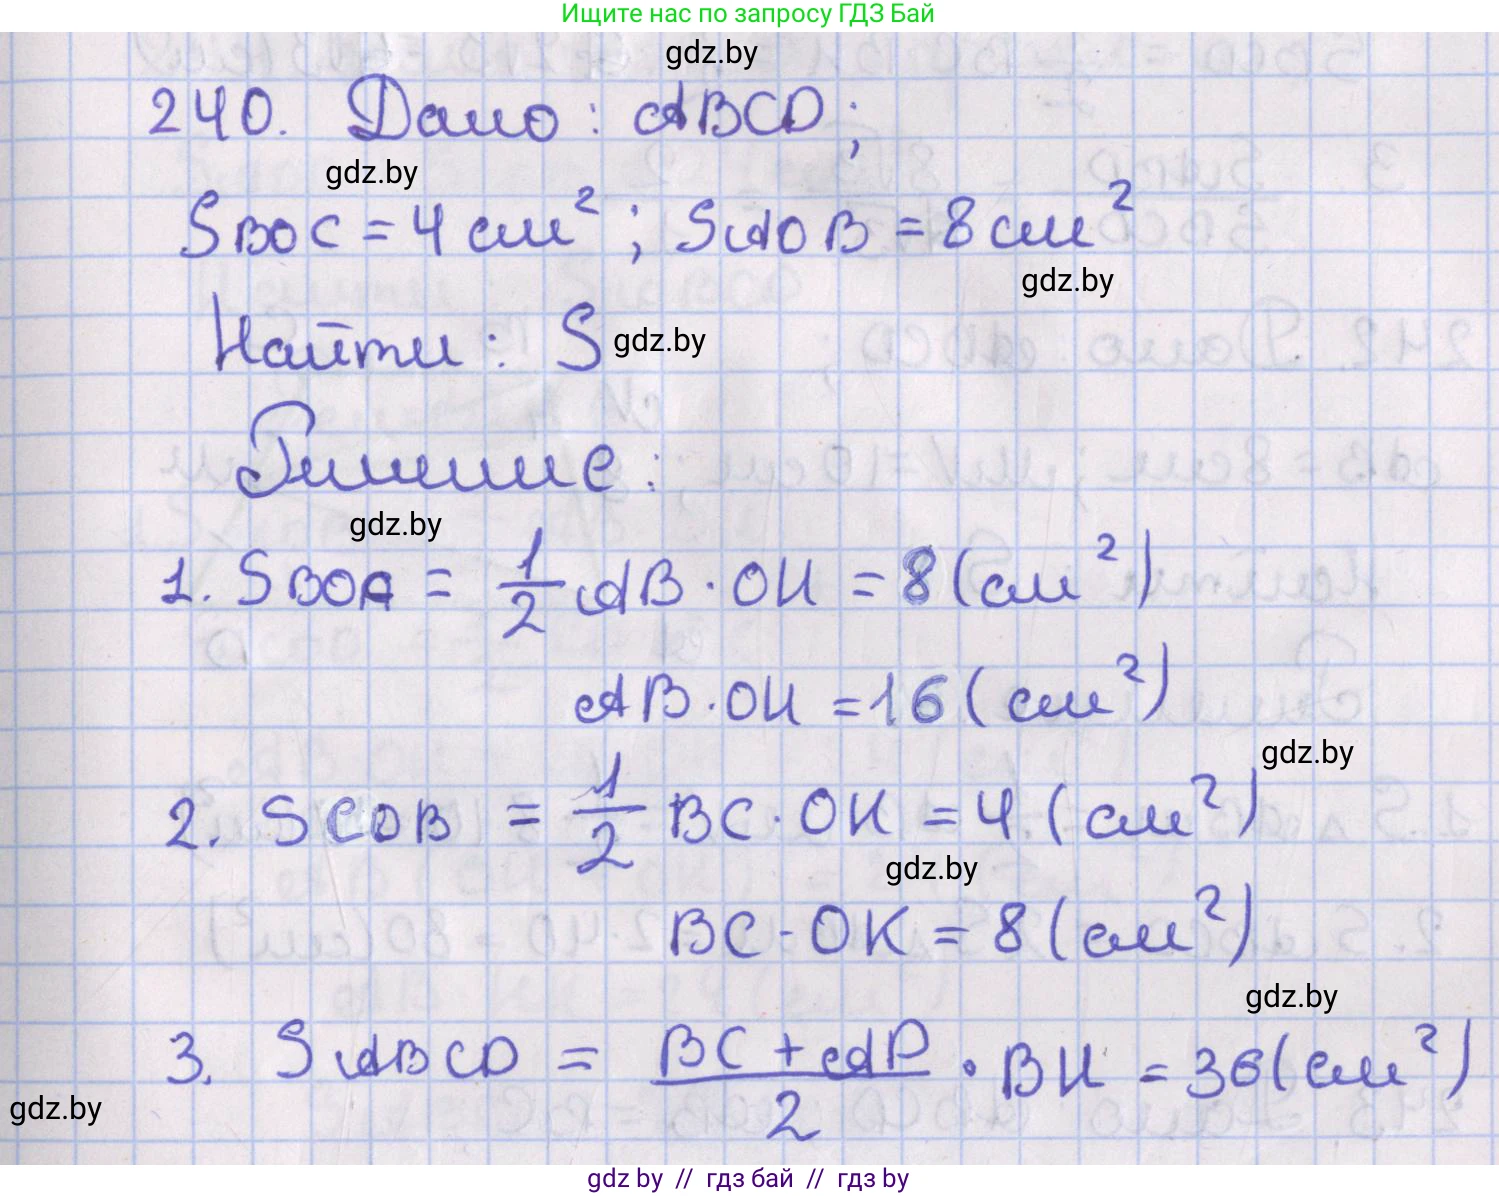 Ищите нас по запросу ГДЗ Бай
gdz.by
240. Дано: ABCD;
gdz.by
SBOC = 4 см²; SAOB = 8 см²
gdz.by
Найти: S gdz.by
Решение:
gdz.by
1. SBOA = 1/2 AB · OH = 8 (см²)
AB · OH = 16 (см²)
gdz.by
2. SCOB = 1/2 BC · OK = 4 (см²)
gdz.by
BC · OK = 8 (см²)
gdz.by
3. SABCD = (BC + AD)/2 · BH = 36 (см²)
gdz.by
gdz.by // гдз бай // гдз by